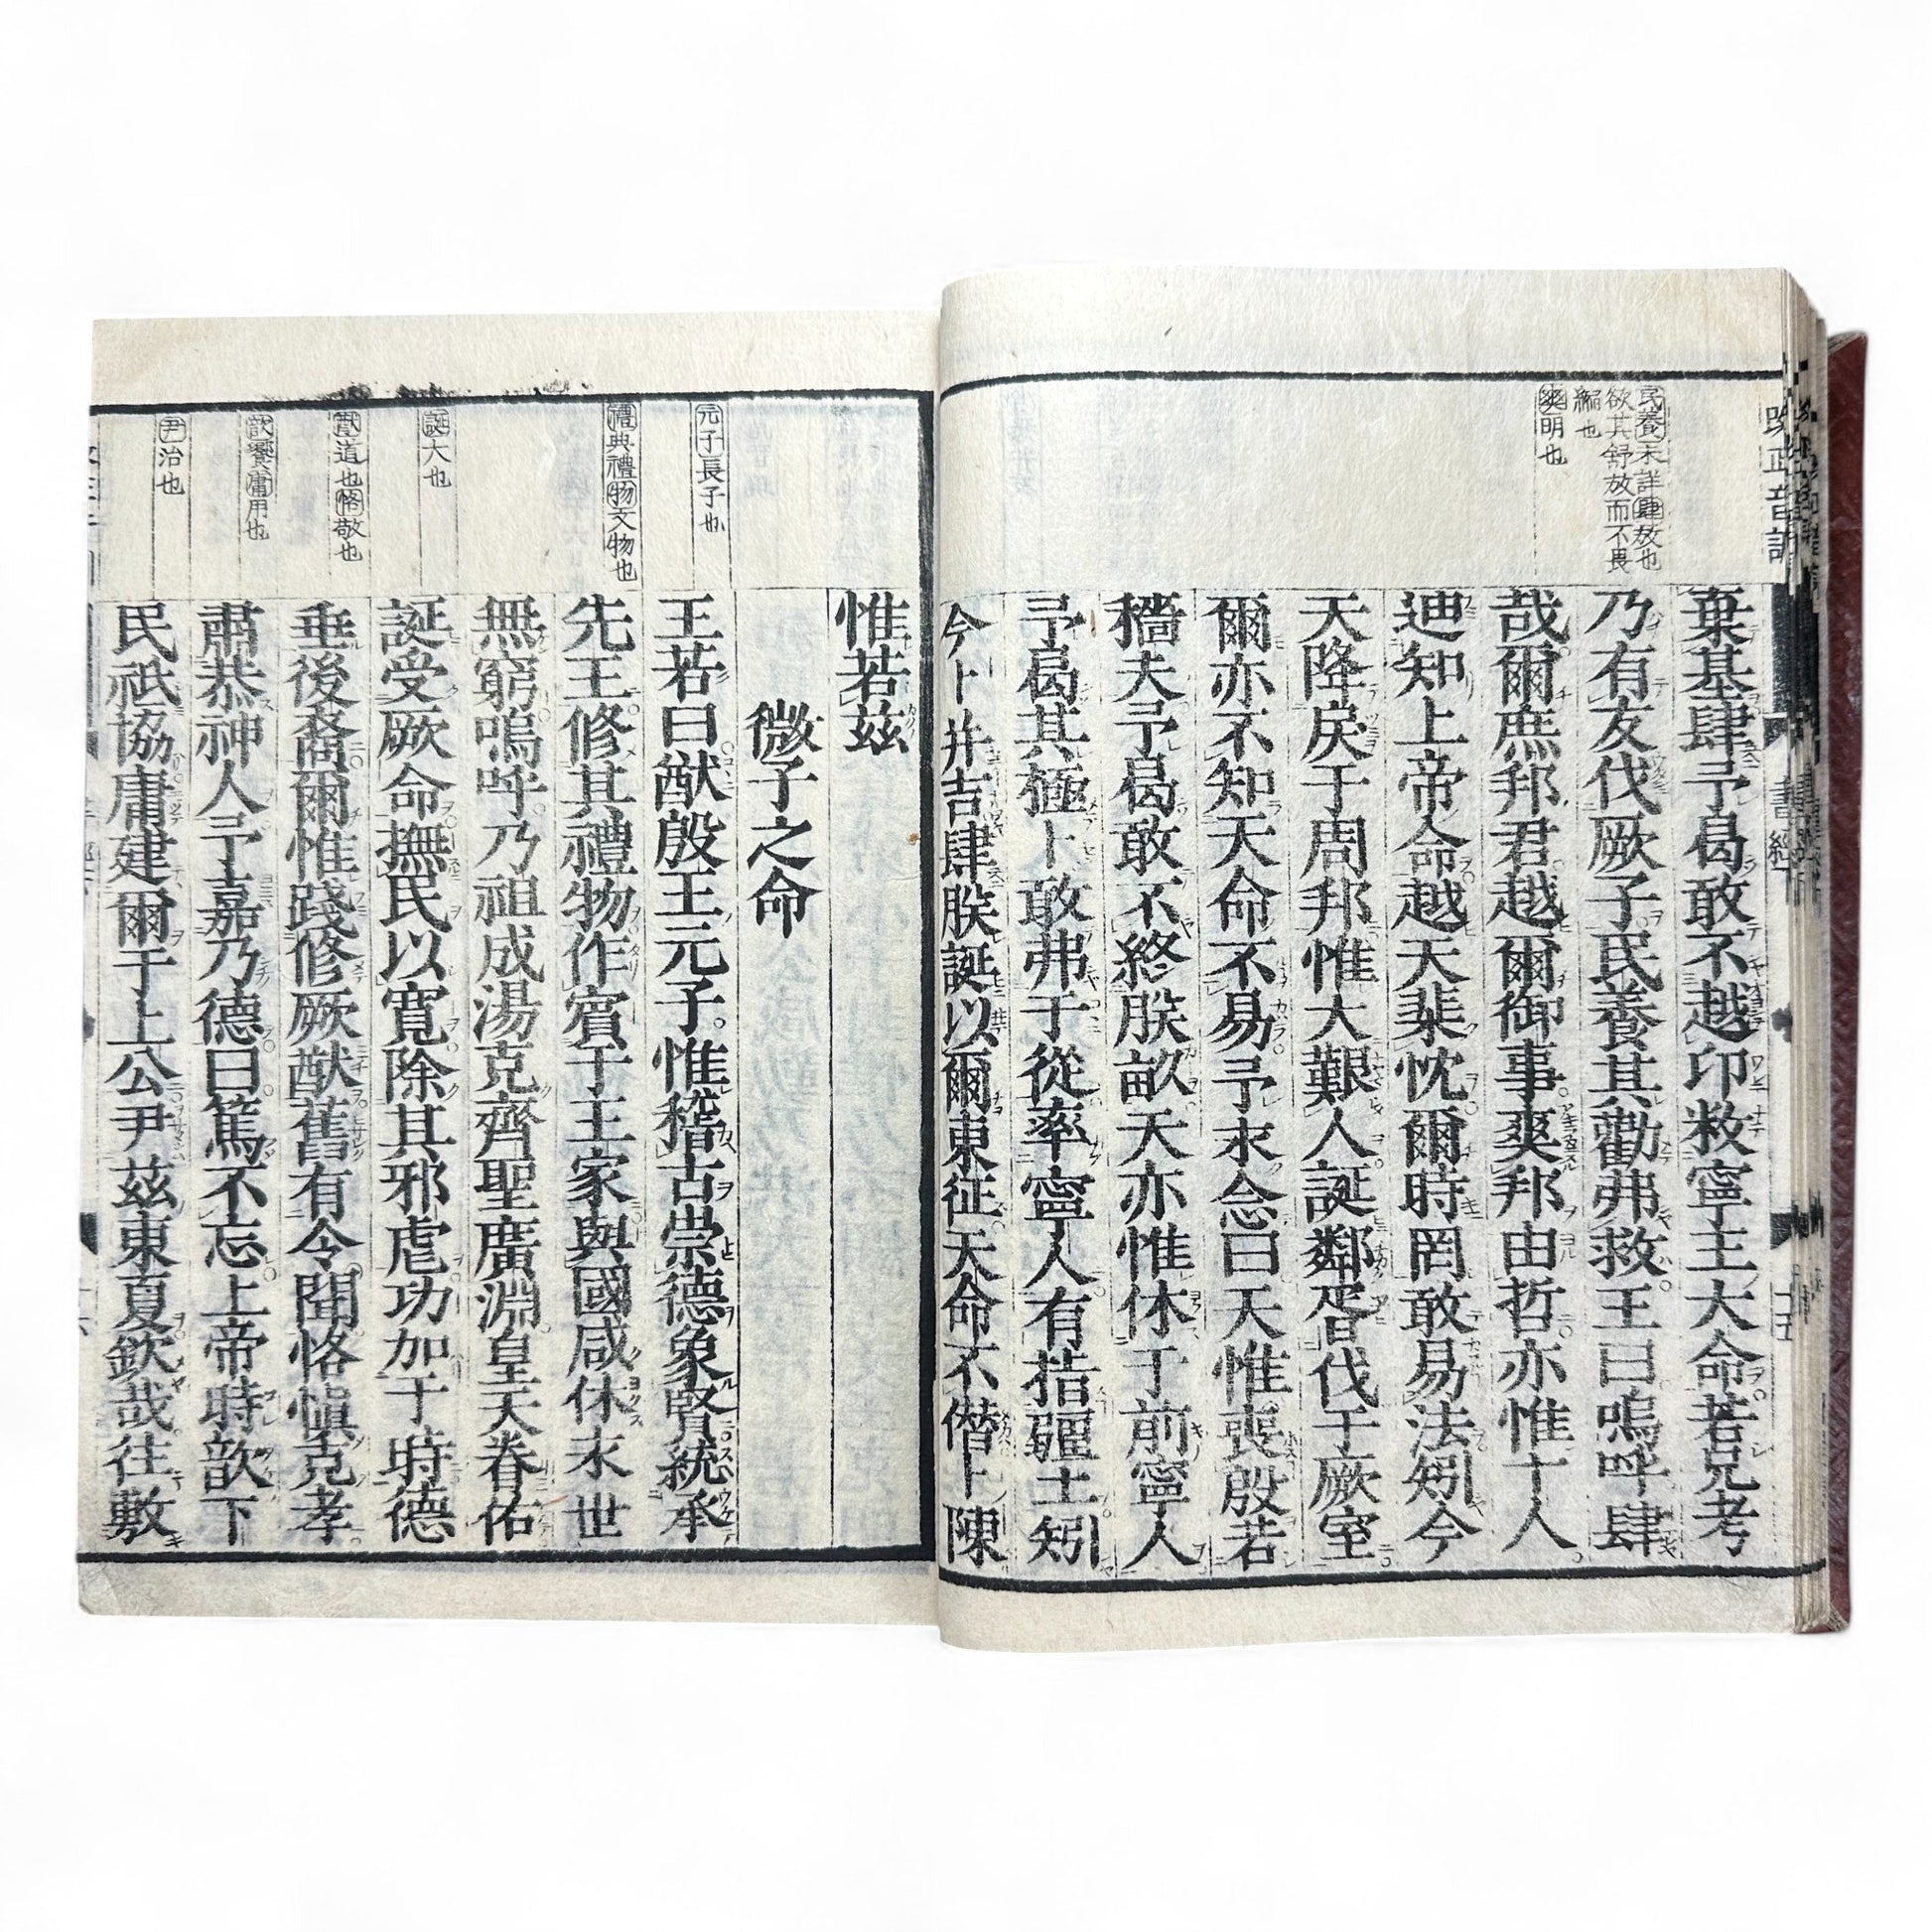 改正音訓 書經 十五
民養未詳肆放也
欲其舒放而不畏
縮也
爽明也
棄基肆予曷敢不越卬敉寧王大命若兄考
乃有友伐厥子民養其勸弗救王曰嗚呼肆
哉爾庶邦君越爾御事爽邦由哲亦惟十人
迪知上帝命越天棐忱爾時罔敢易法矧今
天降戾于周邦惟大艱人誕鄰胥伐于厥室
爾亦不知天命不易予永念曰天惟喪殷若
穡夫予曷敢不終朕畝天亦惟休于前寧人
予曷其極卜敢弗于從率寧人有指疆土矧
今卜并吉肆朕誕以爾東征天命不僭卜陳
元子長子也
禮典禮物文物也
誕大也
猷道也恪敬也
歆饗庸用也
尹治也
惟若茲
微子之命
王若曰猷殷王元子惟稽古崇德象賢統承
先王修其禮物作賓于王家與國咸休永世
無窮嗚呼乃祖成湯克齊聖廣淵皇天眷佑
誕受厥命撫民以寬除其邪虐功加于時德
垂後裔爾惟踐修厥猷舊有令聞恪慎克孝
肅恭神人予嘉乃德曰篤不忘上帝時歆下
民祗協庸建爾于上公尹茲東夏欽哉往敷